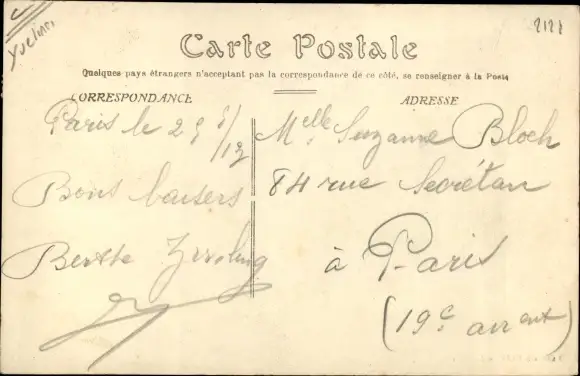 Yvelines
2121
Carte Postale
Quelques pays étrangers n'acceptant pas la correspondance de ce côté, se renseigner à la Poste
CORRESPONDANCE
ADRESSE
Paris le 25
Bons baisers
Berthe
Melle Suzanne Bloch
84 rue Secrétan
à Paris
(19e arrent)